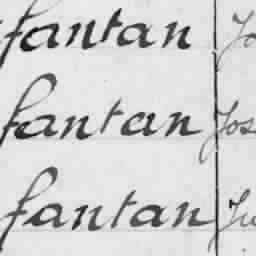 fantan Jo
fantan Jos
fantan Ju